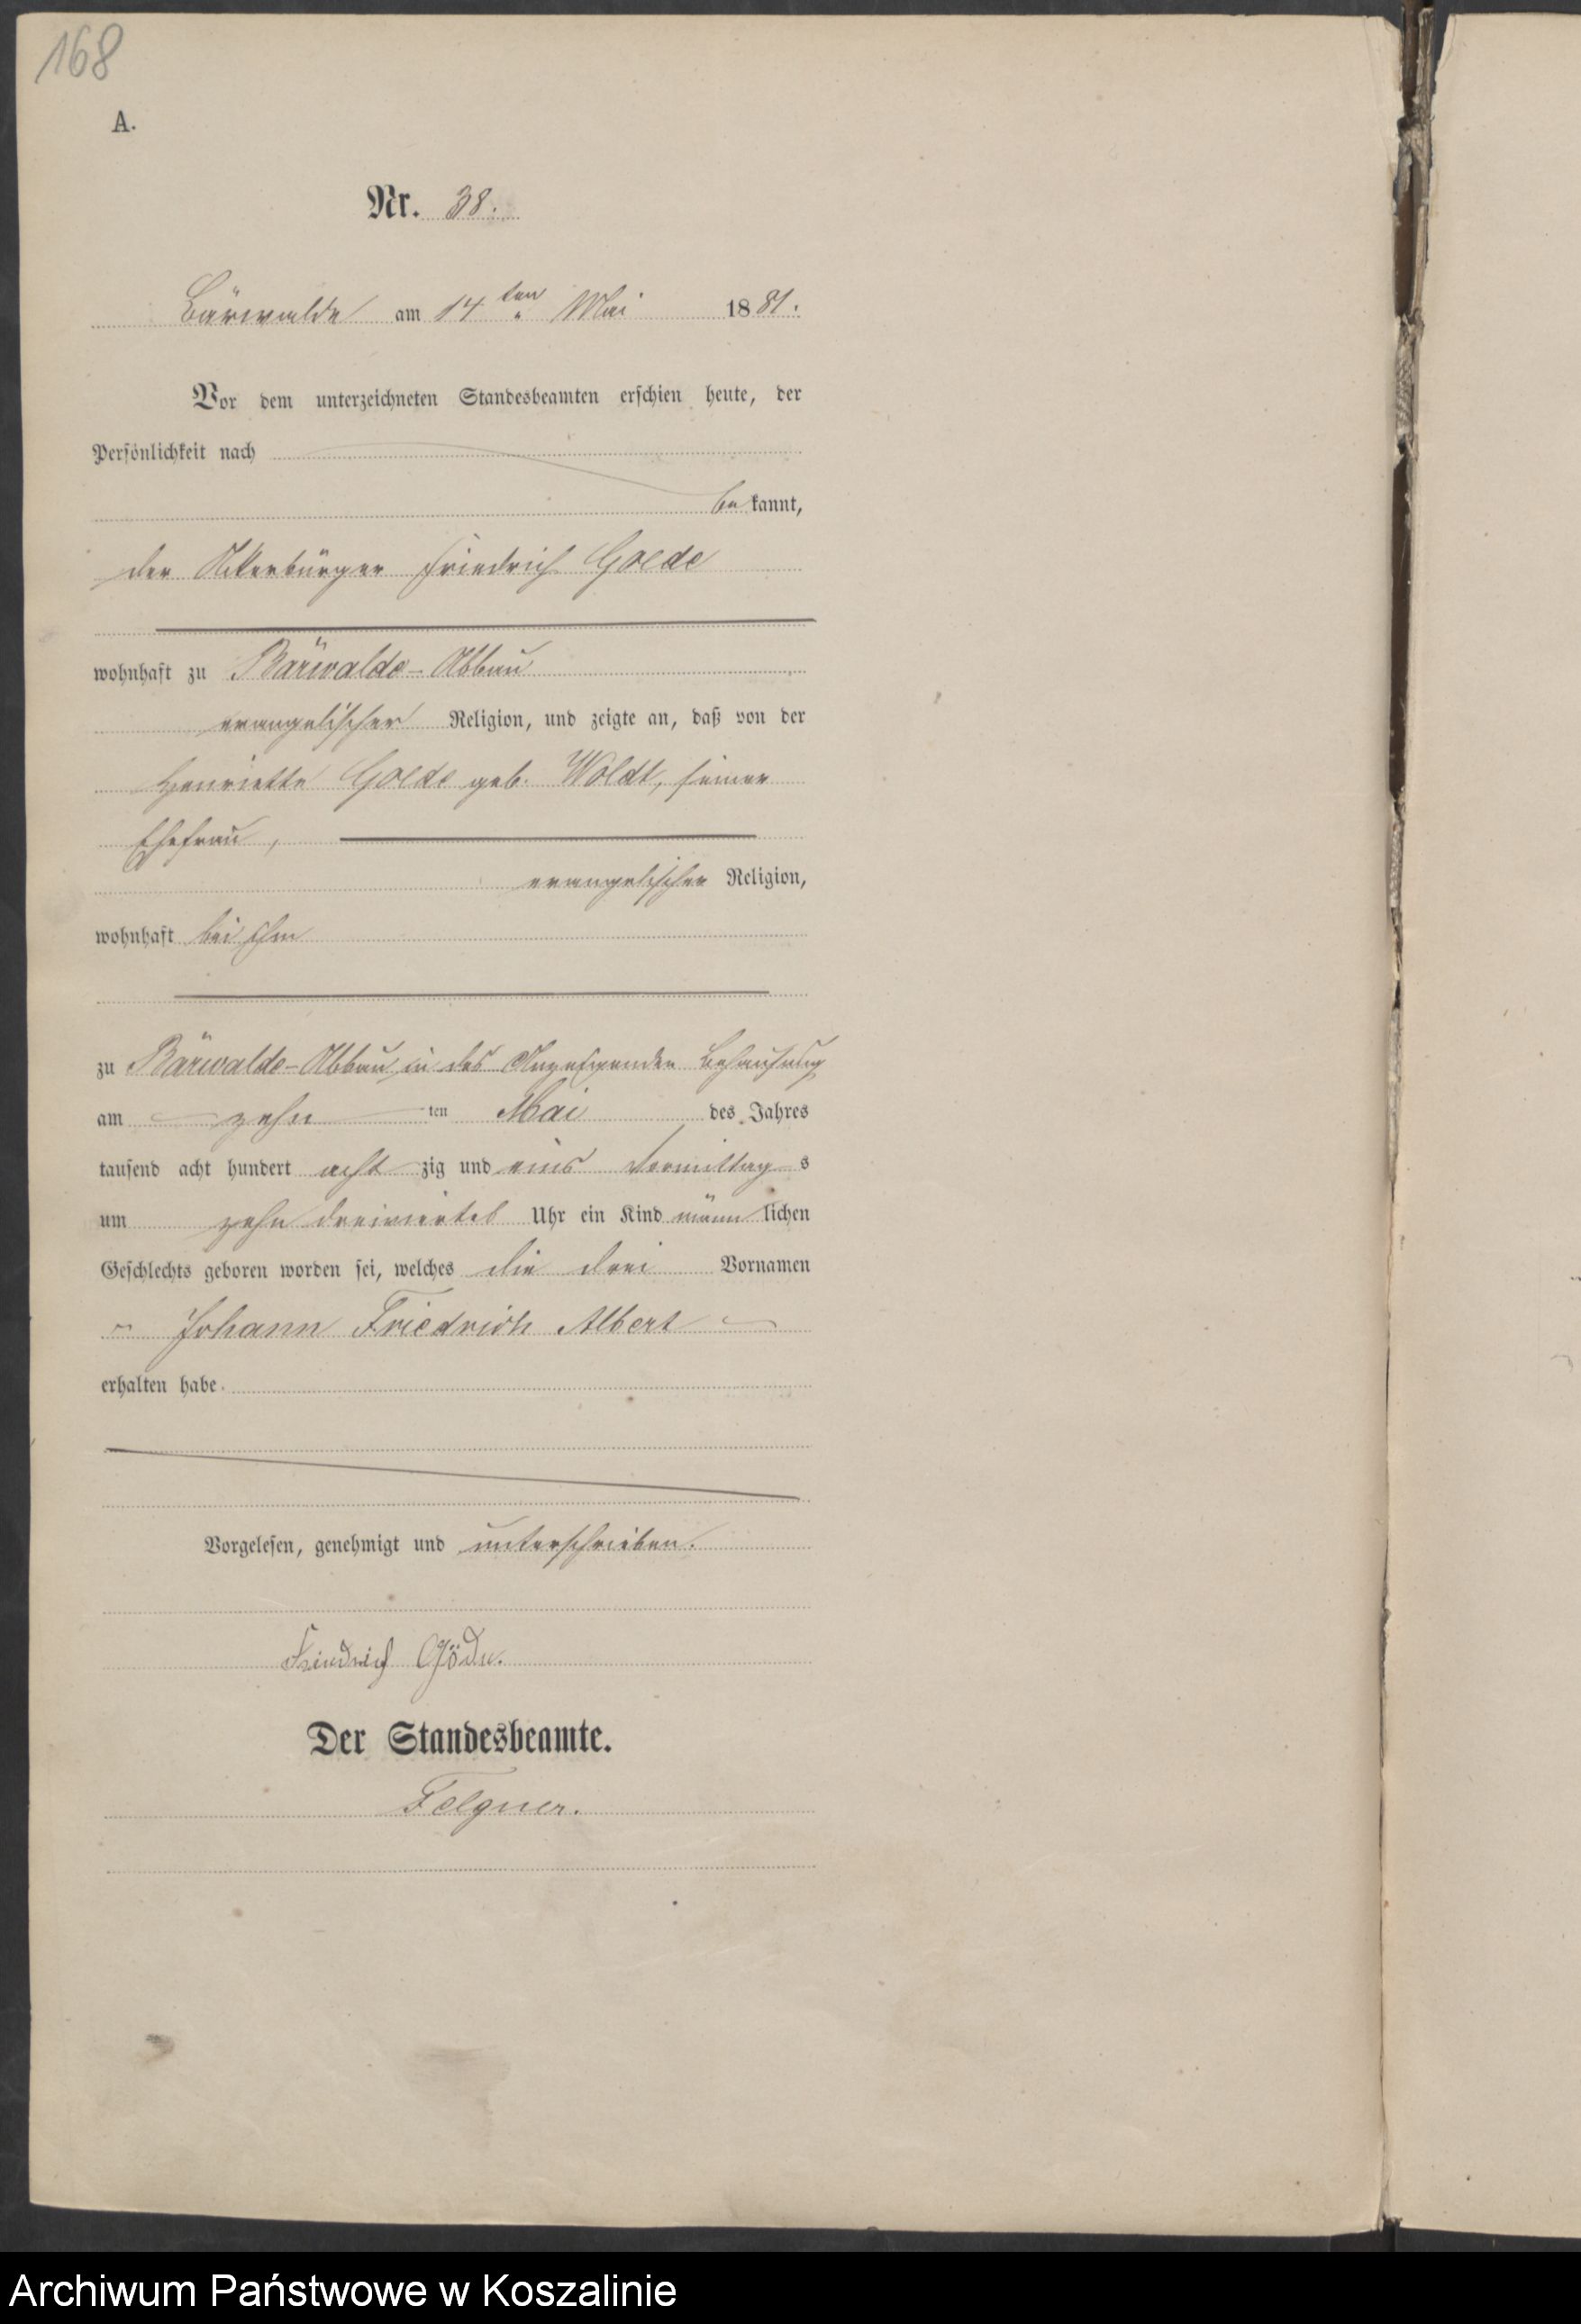 168
A.
Nr. 38.
Bärwalde am 14ten Mai 1881.
Vor dem unterzeichneten Standesbeamten erschien heute, der
Persönlichkeit nach
bekannt,
der Ackerbürger Friedrich Goede
wohnhaft zu Bärwalde-Abbau
evangelischer Religion, und zeigte an, daß von der
Henriette Goede geb. Woldt, seiner
Ehefrau,
evangelischer Religion,
wohnhaft bei ihm
zu Bärwalde-Abbau in des Anzeigenden Behausung
am zehnten Mai des Jahres
tausend acht hundert achtzig und eins Vormittags
um zehn dreiviertel Uhr ein Kind männlichen
Geschlechts geboren worden sei, welches die drei Vornamen
Johann Friedrich Albert
erhalten habe.
Vorgelesen, genehmigt und unterschrieben.
Friedrich Göde.
Der Standesbeamte.
Felgner.
Archiwum Państwowe w Koszalinie